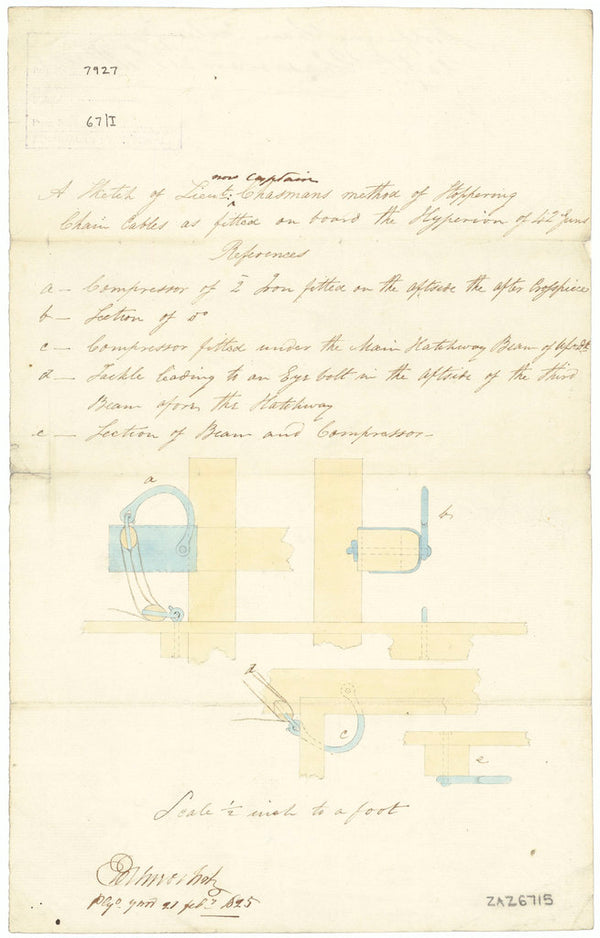 7927
67/I
now Captain
A Sketch of Lieut: Chasmans method of Stoppering
Chain Cables as fitted on board the Hyperion of 42 Guns
References
a - Compressor of ½ Iron fitted on the aftside the after Crosspiece
b - Section of Do
c - Compressor fitted under the Main Hatchway Beam of
d - Tackle leading to an Eye bolt in the aftside of the third
Beam afore the Hatchway
e - Section of Beam and Compressor -
a
b
d
c
e
Scale ½ inch to a foot
yard 21 feby 1825
ZAZ6715